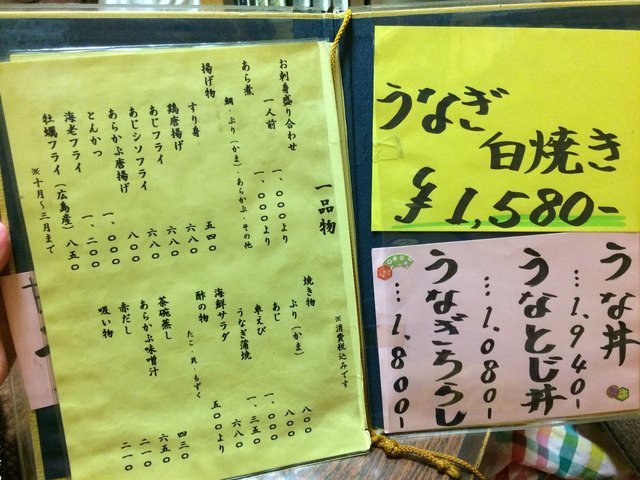 一品物
※消費税込みです
お刺身盛り合わせ
一人前 一、〇〇〇より
あら煮
鯛・ぶり(かま)・あらかぶ・その他 一、〇〇〇より
揚げ物
すり身 五四〇
鶏唐揚げ 六八〇
あじフライ 六八〇
あじシソフライ 六八〇
あらかぶ唐揚げ 八〇〇
とんかつ 一、〇〇〇
海老フライ 一、二〇〇
牡蠣フライ(広島産) 八五〇
※十月〜三月まで
焼き物
ぶり(かま) 八〇〇
あじ 八〇〇
車えび 一、〇〇〇
うなぎ蒲焼 一、三五〇
海鮮サラダ 六八〇
酢の物
たこ・貝・もずく 五〇〇より
茶碗蒸し 四三〇
あらかぶ味噌汁 六五〇
赤だし 二一〇
吸い物 二一〇
うなぎ
白焼き
¥1,580-
うな丼
…1,940-
うなとじ丼
…1,080-
うなぎちらし
…1,800-